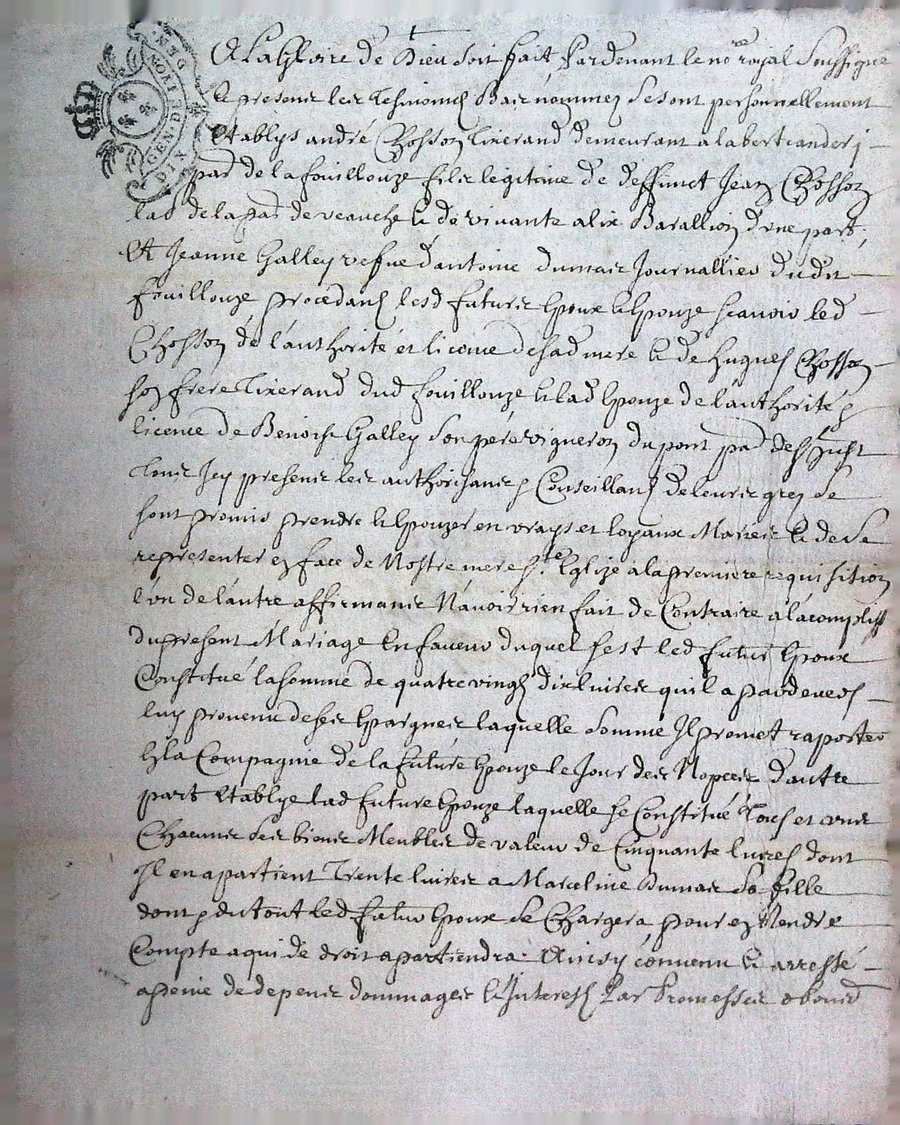 A La gloire de Dieu soit fait Pardevant le no.re royal Soussigne
& presens les tesmoins Bas nommez se sont personnellement
establys andré Chosson tixerand demeurant a labertranderj
par. de la fouillouze fils legitime de deffunct Jean Chosson
lab. de la par. de veauche & de vivante alix Barallion d'vne part,
Et Jeanne Galley vefue d'antoine dumas Journallier dudit
fouillouze procedans lesd futurs Epoux & Epouze scauoir led
Chosson de l'authorité et licence de sad mere & de hugues Chosson
son frere tixerand dud fouillouze & lad Epouze de l'authorité &
licence de Benoist Galley son pere vigneron du pont par. de St Just
tous Icy presens les authorisans & Conseillans de leurs grez se
sont promis prendre & Epouzer en vrays et loyaux Maries & de se
representer en face de Nostre mere Ste Eglize a la premiere requisition
l'vn de l'autre affirmans N'avoir rien fait de Contraire a l'acompliss
du present Mariage En faueur duquel s'est led futur Epoux
Constitué la somme de quatre vingts dix liures qu'il a pardeuers
luy provenu de ses Epargnes laquelle somme Il promet raporter
En la Compagnie de la future Epouze le Jour des Nopces d'autre
part Establye lad future Epouze laquelle se Constitue tous et vns
Chacuns ses biens Meubles de valeur de Cinquante liures dont
Il en apartient Trente liures a Marceline Dumas sa fille
dont & du tout led futur Epoux se Chargera pour en Rendre
Compte a qui de droit apartiendra. Ainsy convenu & arresté
a peine de depens dommages & Interests Par Promesses obond
GEN. DE LYON
DIX DEN.